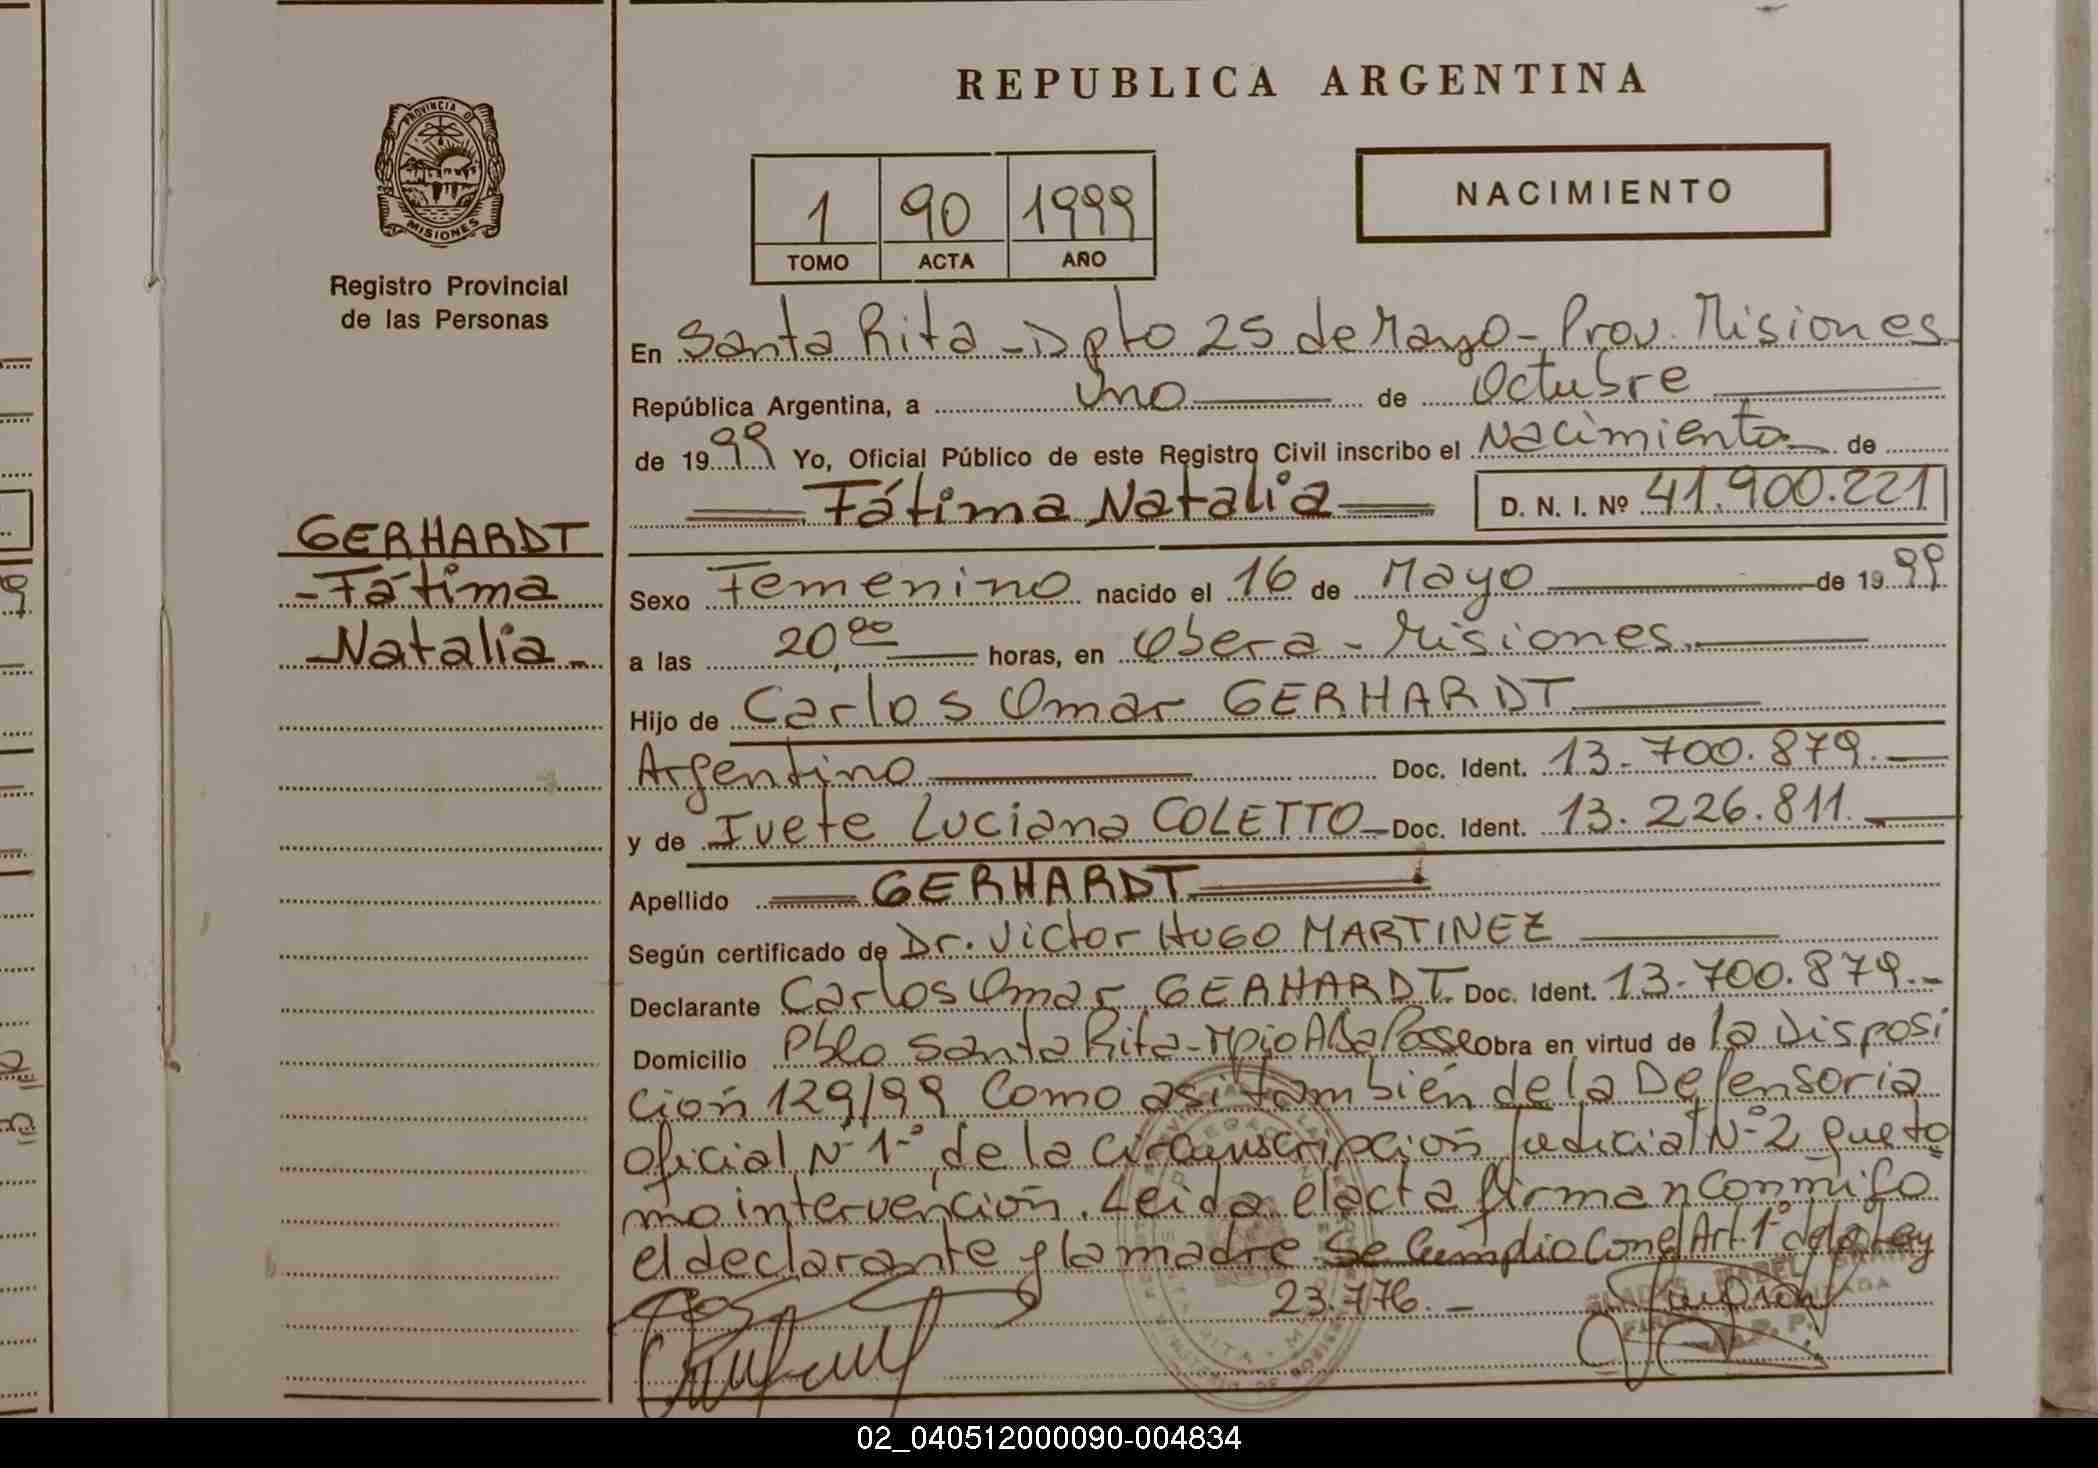 REPUBLICA ARGENTINA
PROVINCIA D
MISIONES
Registro Provincial
de las Personas
GERHARDT
- Fátima
- Natalia -
1 90 1999
TOMO ACTA AÑO
NACIMIENTO
En Santa Rita - Dpto 25 de Mayo - Prov. Misiones
República Argentina, a Uno de Octubre
de 1999 Yo, Oficial Público de este Registro Civil inscribo el Nacimiento de
Fátima Natalia D. N. I. Nº 41.900.221
Sexo Femenino nacido el 16 de Mayo de 1999
a las 20,00 horas, en Obera - Misiones.
Hijo de Carlos Omar GERHARDT
Argentino Doc. Ident. 13.700.879.
y de Ivete Luciana COLETTO Doc. Ident. 13.226.811.
Apellido GERHARDT
Según certificado de Dr. Victor HUGO MARTINEZ
Declarante Carlos Omar GERHARDT Doc. Ident. 13.700.879.-
Domicilio Pblo Santa Rita - Mpio Alba Posse Obra en virtud de la Disposi
ción 129/99 Como asi también de la Defensoria
oficial Nº 1º de la Circunscripción Judicial Nº 2 que to
mo intervención. Leida el acta firman conmigo
el declarante y la madre Se Cumplio Con el Art. 1º de la Ley
23.776. -
02_040512000090-004834